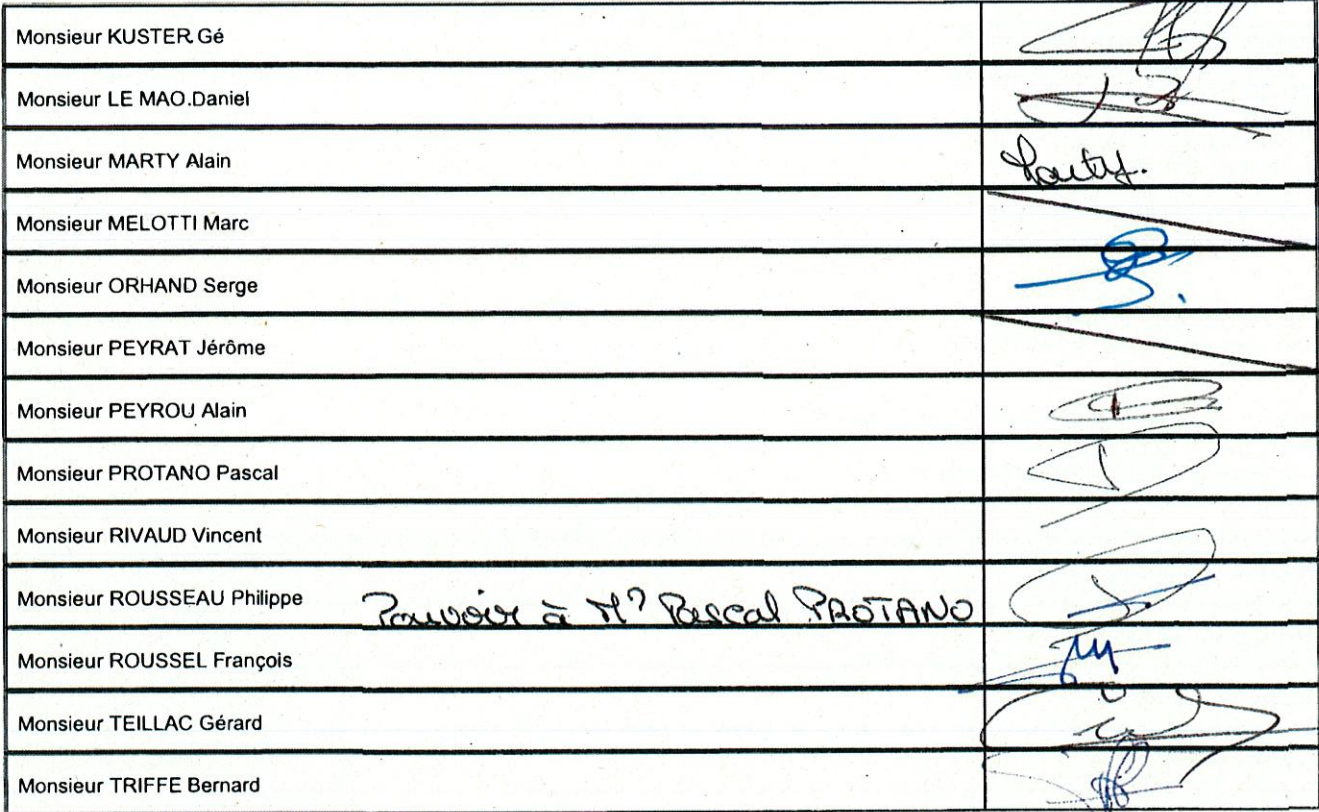 Monsieur KUSTER Gé
Monsieur LE MAO.Daniel
Monsieur MARTY Alain Marty.
Monsieur MELOTTI Marc
Monsieur ORHAND Serge
Monsieur PEYRAT Jérôme
Monsieur PEYROU Alain
Monsieur PROTANO Pascal
Monsieur RIVAUD Vincent
Monsieur ROUSSEAU Philippe Pouvoir à Mr Pascal PROTANO
Monsieur ROUSSEL François
Monsieur TEILLAC Gérard
Monsieur TRIFFE Bernard